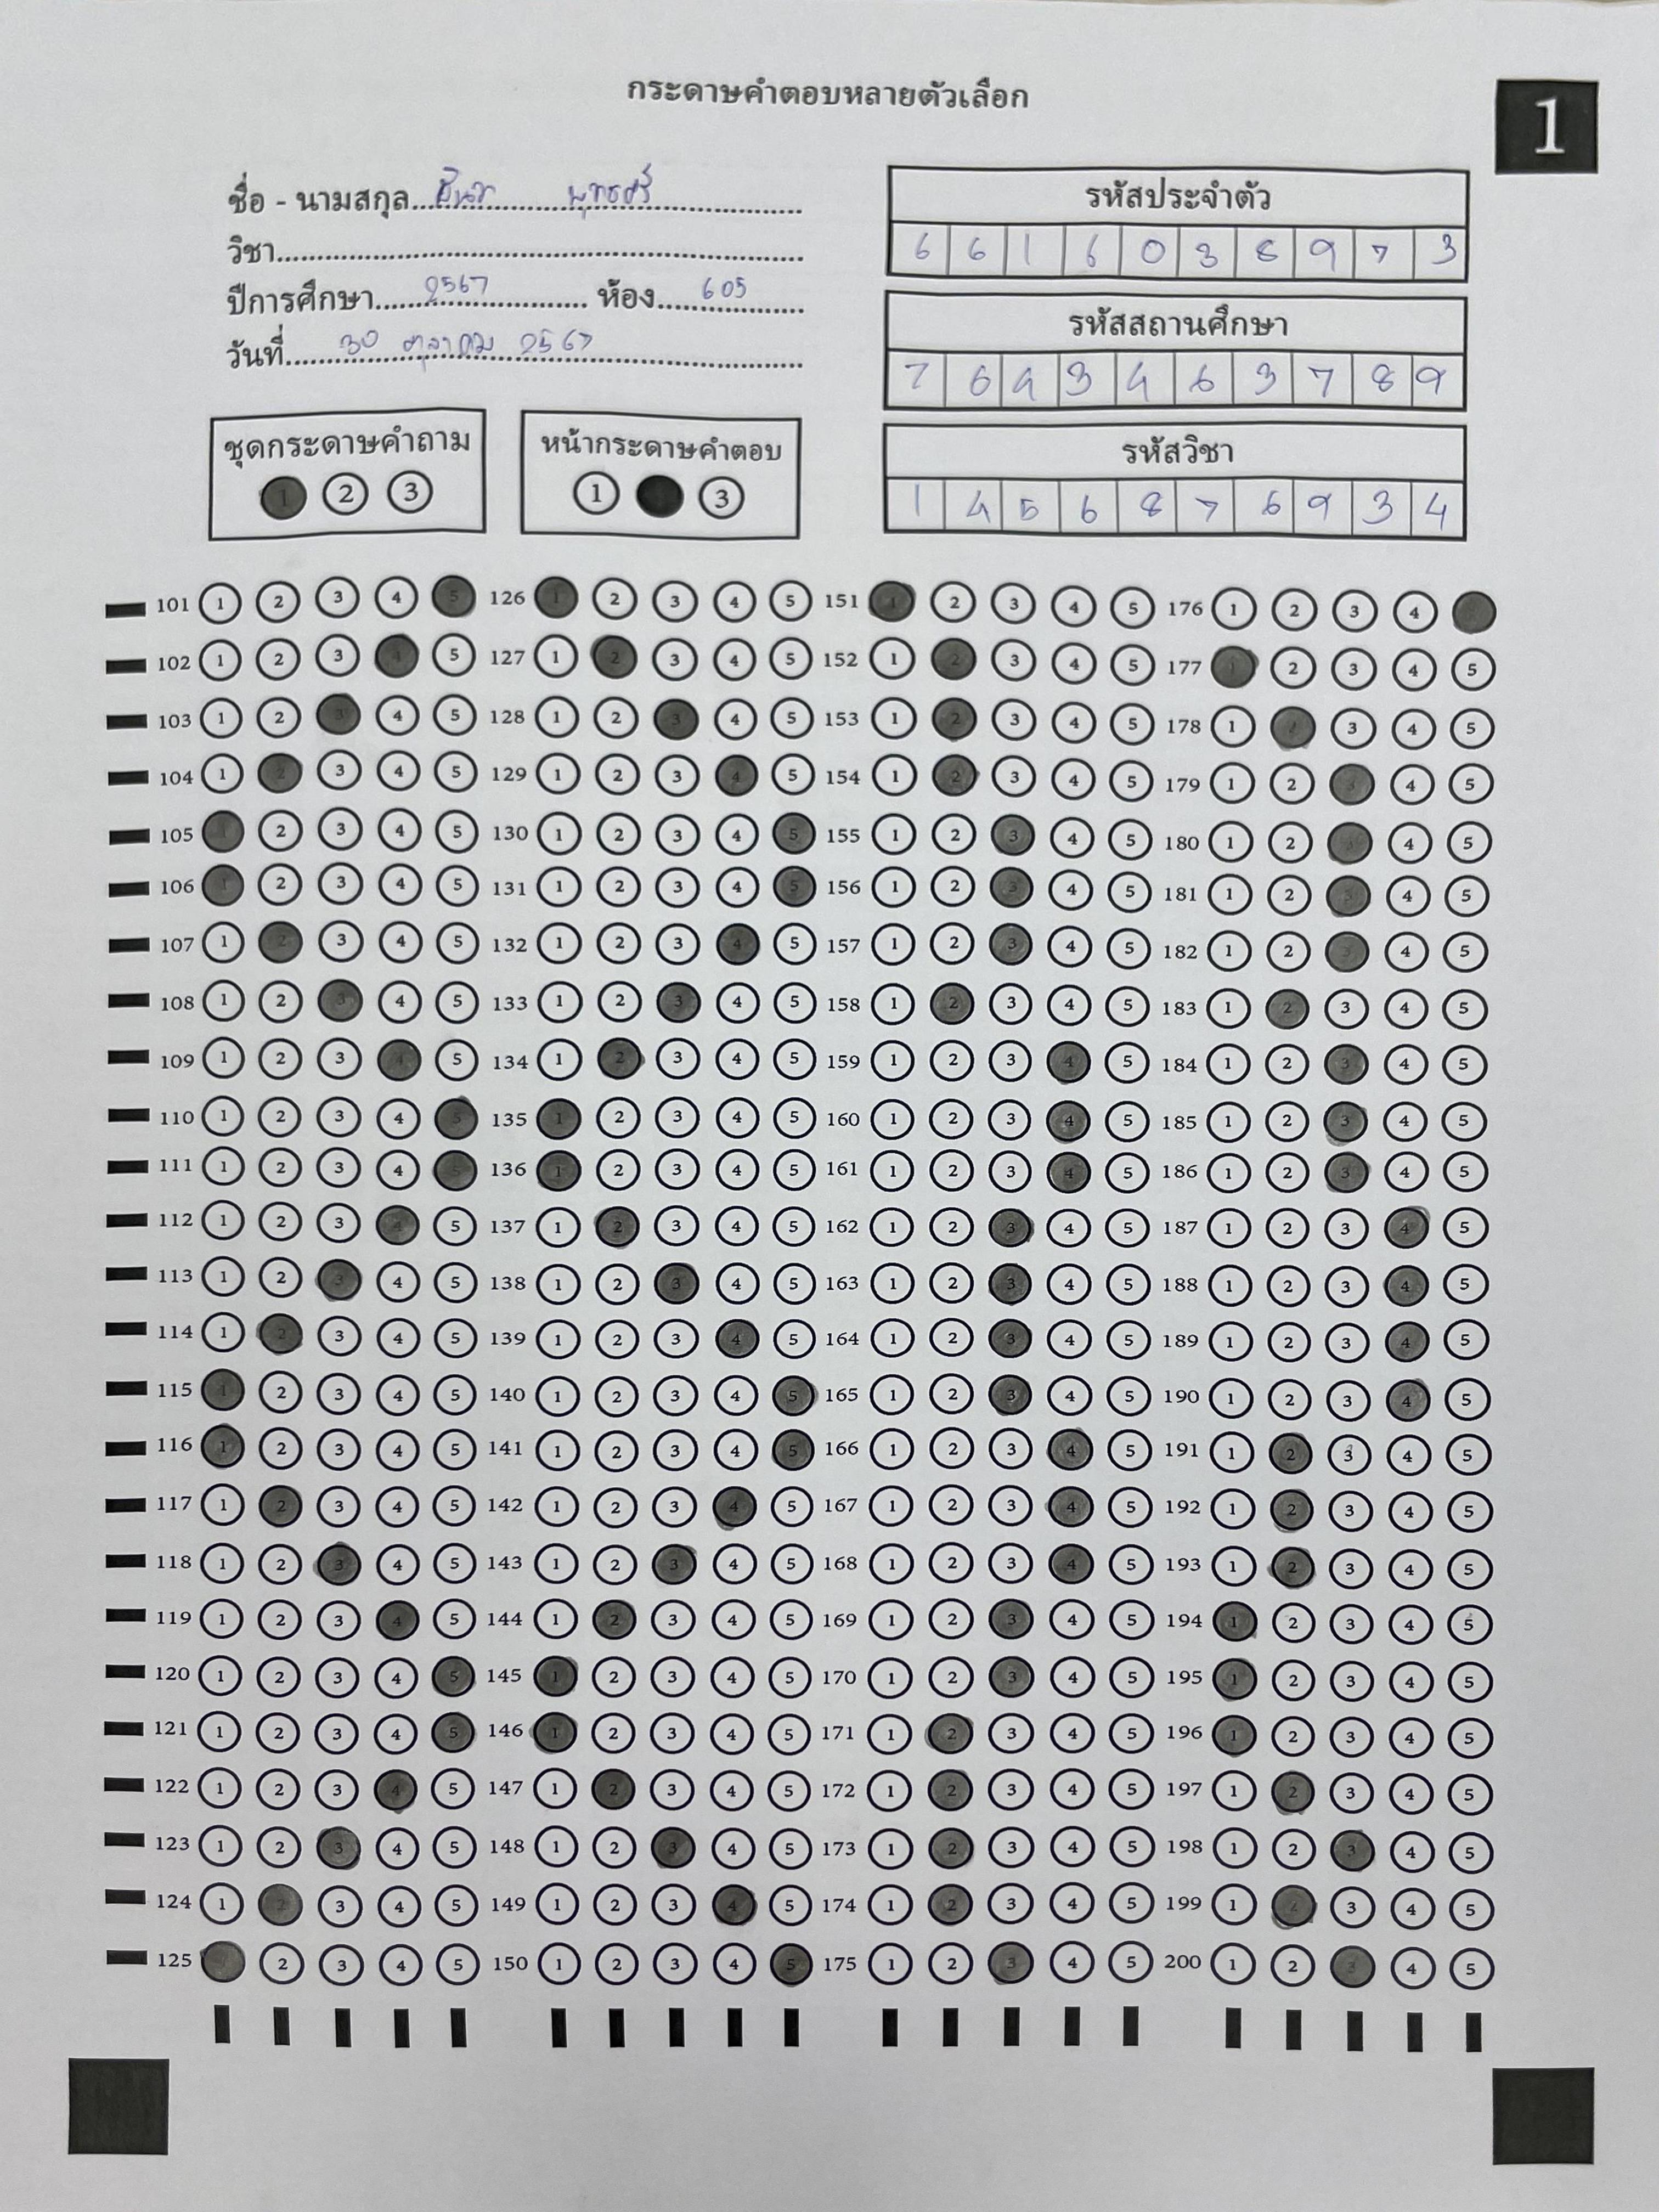 กระดาษคำตอบหลายตัวเลือก
1
ชื่อ - นามสกุล
วิชา
ปีการศึกษา 2567 ห้อง 605
วันที่ 30 ตุลาคม 2567
รหัสประจำตัว
6 6 1 6 0 3 8 9 7 3
รหัสสถานศึกษา
7 6 4 3 4 6 3 7 8 9
รหัสวิชา
1 4 5 6 8 7 6 9 3 4
ชุดกระดาษคำถาม
1 2 3
หน้ากระดาษคำตอบ
1 3
101 1 2 3 4 5 126 1 2 3 4 5 151 1 2 3 4 5 176 1 2 3 4
102 1 2 3 4 5 127 1 2 3 4 5 152 1 2 3 4 5 177 1 2 3 4 5
103 1 2 3 4 5 128 1 2 3 4 5 153 1 2 3 4 5 178 1 2 3 4 5
104 1 2 3 4 5 129 1 2 3 4 5 154 1 2 3 4 5 179 1 2 3 4 5
105 1 2 3 4 5 130 1 2 3 4 5 155 1 2 3 4 5 180 1 2 3 4 5
106 1 2 3 4 5 131 1 2 3 4 5 156 1 2 3 4 5 181 1 2 3 4 5
107 1 2 3 4 5 132 1 2 3 4 5 157 1 2 3 4 5 182 1 2 3 4 5
108 1 2 3 4 5 133 1 2 3 4 5 158 1 2 3 4 5 183 1 2 3 4 5
109 1 2 3 4 5 134 1 2 3 4 5 159 1 2 3 4 5 184 1 2 3 4 5
110 1 2 3 4 5 135 1 2 3 4 5 160 1 2 3 4 5 185 1 2 3 4 5
111 1 2 3 4 5 136 1 2 3 4 5 161 1 2 3 4 5 186 1 2 3 4 5
112 1 2 3 4 5 137 1 2 3 4 5 162 1 2 3 4 5 187 1 2 3 4 5
113 1 2 3 4 5 138 1 2 3 4 5 163 1 2 3 4 5 188 1 2 3 4 5
114 1 2 3 4 5 139 1 2 3 4 5 164 1 2 3 4 5 189 1 2 3 4 5
115 1 2 3 4 5 140 1 2 3 4 5 165 1 2 3 4 5 190 1 2 3 4 5
116 1 2 3 4 5 141 1 2 3 4 5 166 1 2 3 4 5 191 1 2 3 4 5
117 1 2 3 4 5 142 1 2 3 4 5 167 1 2 3 4 5 192 1 2 3 4 5
118 1 2 3 4 5 143 1 2 3 4 5 168 1 2 3 4 5 193 1 2 3 4 5
119 1 2 3 4 5 144 1 2 3 4 5 169 1 2 3 4 5 194 1 2 3 4 5
120 1 2 3 4 5 145 1 2 3 4 5 170 1 2 3 4 5 195 1 2 3 4 5
121 1 2 3 4 5 146 1 2 3 4 5 171 1 2 3 4 5 196 1 2 3 4 5
122 1 2 3 4 5 147 1 2 3 4 5 172 1 2 3 4 5 197 1 2 3 4 5
123 1 2 3 4 5 148 1 2 3 4 5 173 1 2 3 4 5 198 1 2 3 4 5
124 1 2 3 4 5 149 1 2 3 4 5 174 1 2 3 4 5 199 1 2 3 4 5
125 2 3 4 5 150 1 2 3 4 5 175 1 2 3 4 5 200 1 2 3 4 5